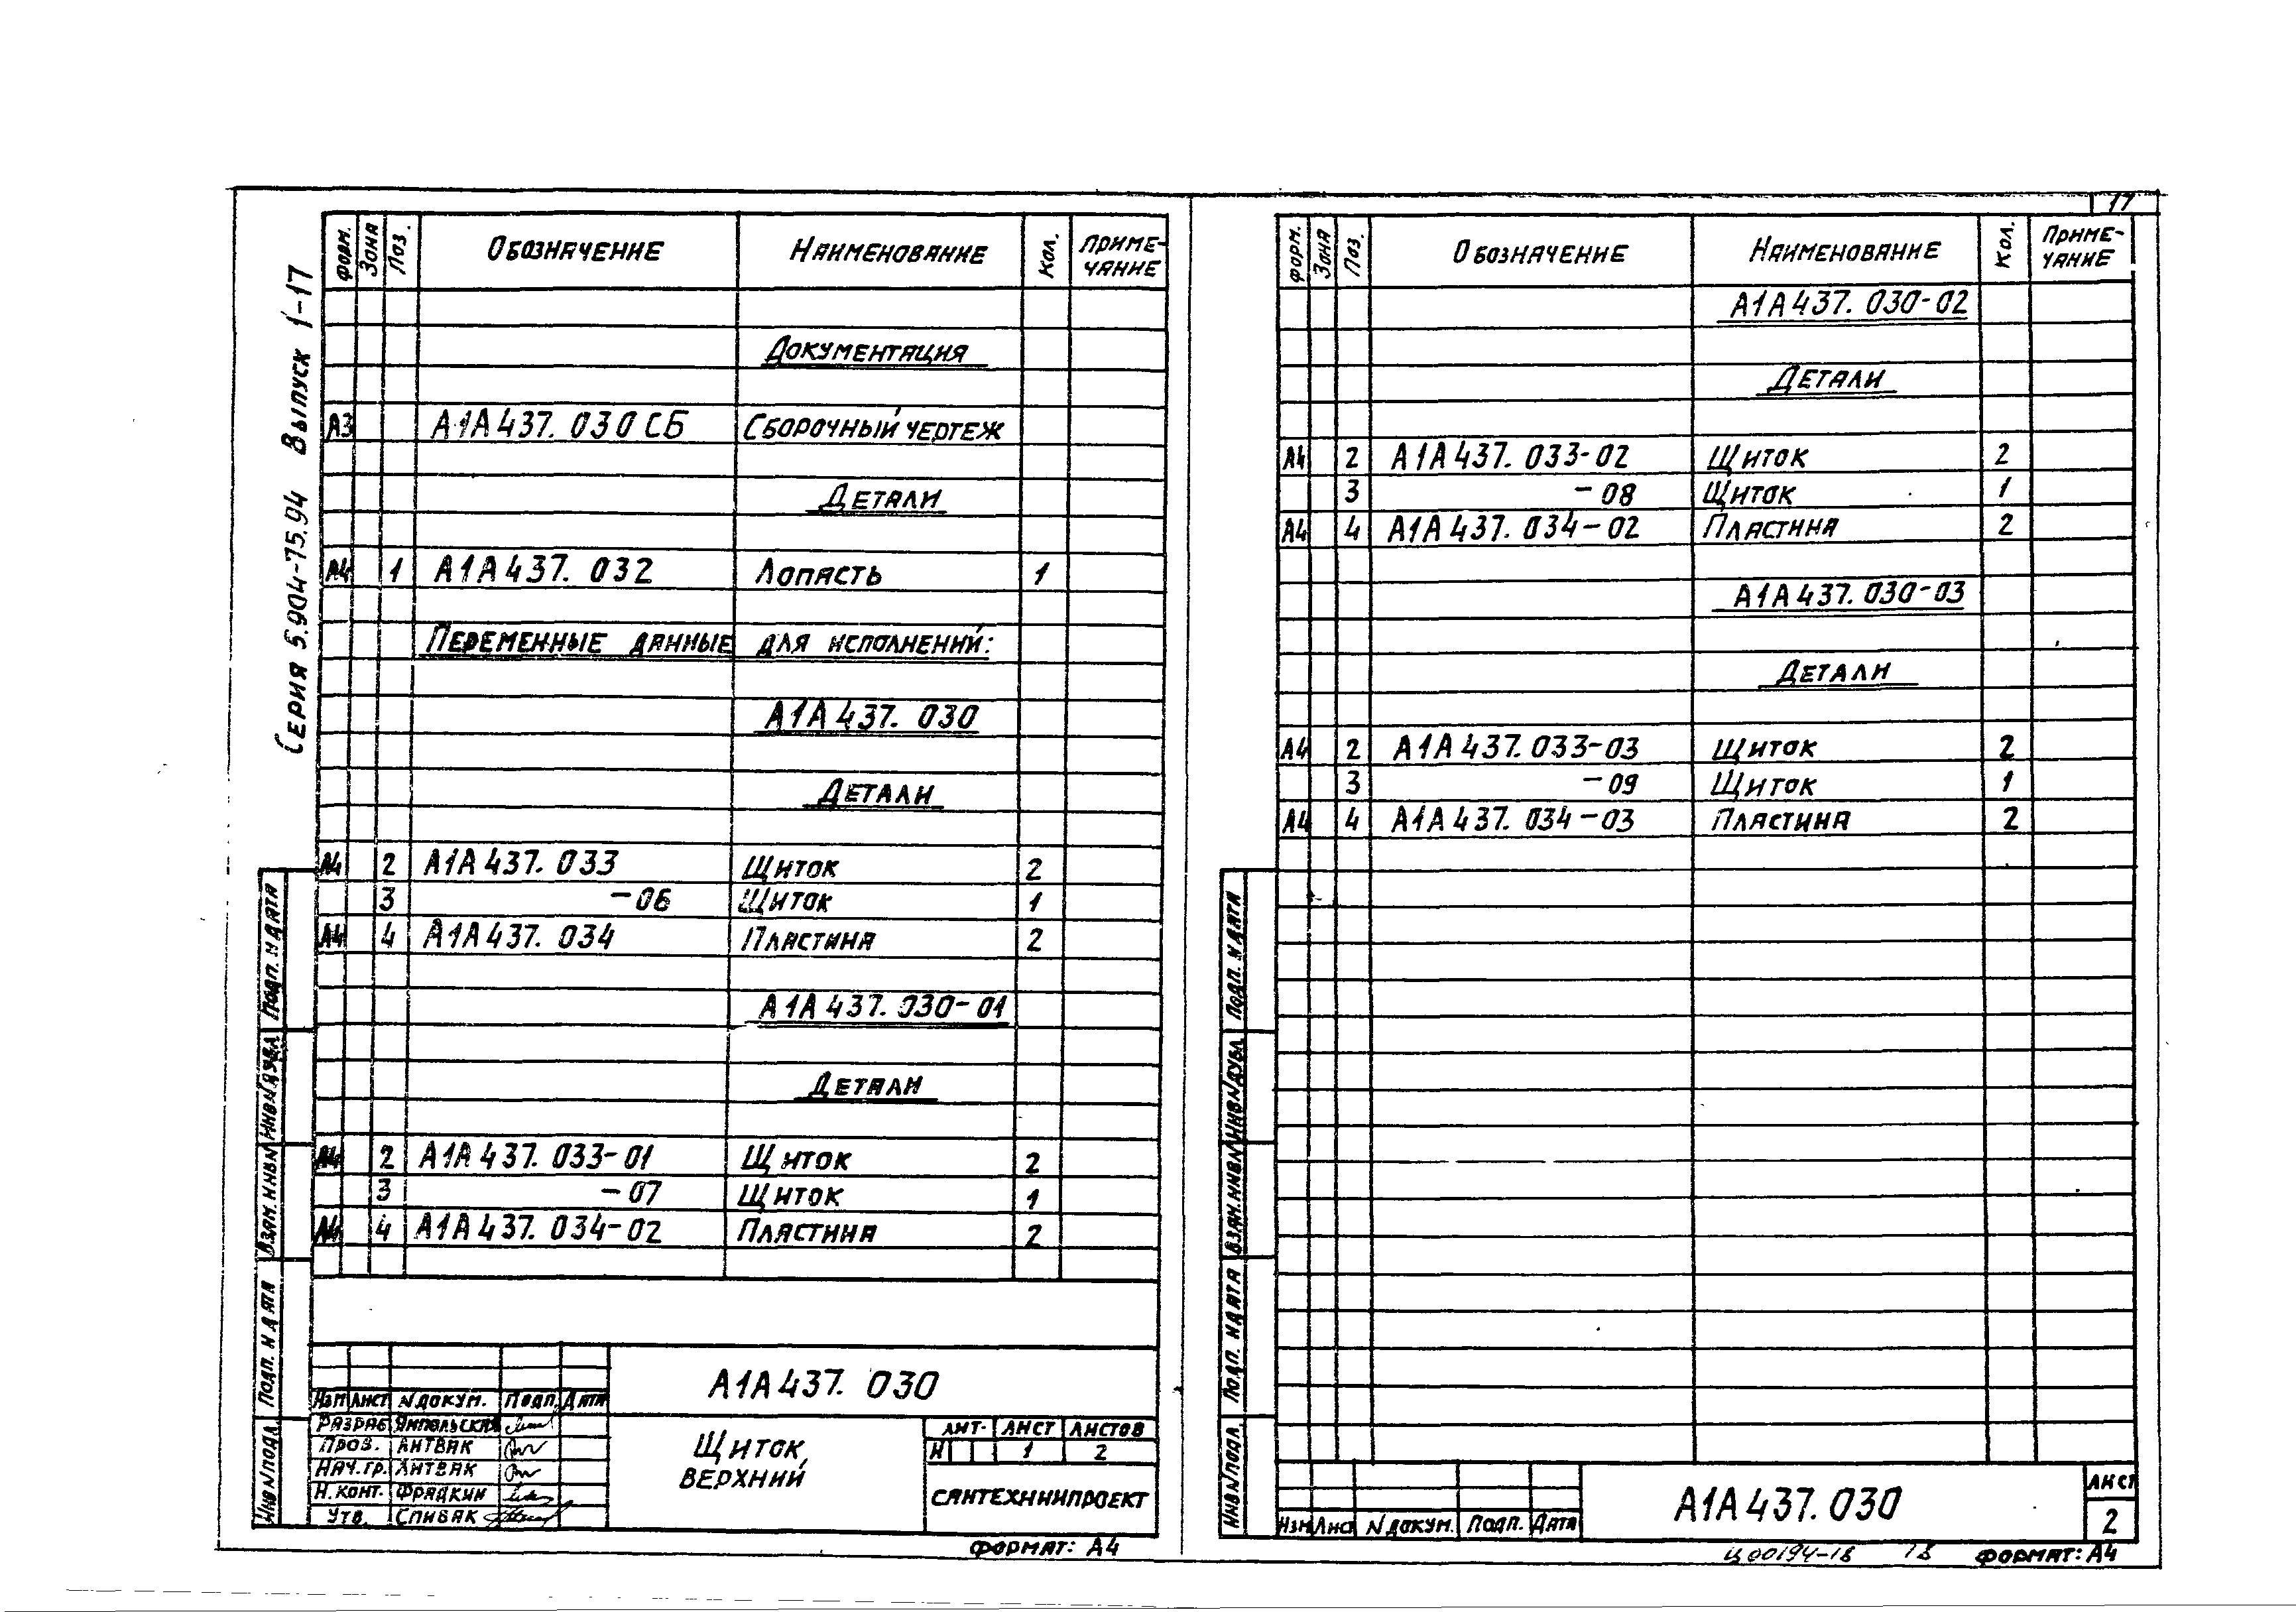 17
Серия 5.904-75.94 Выпуск 1-17
Форм. Зона Поз. Обозначение Наименование Кол. Приме-
чание
Документация
А3 А1А437.030 СБ Сборочный чертеж
Детали
А4 1 А1А437.032 Лопасть 1
Переменные данные для исполнений:
А1А437.030
Детали
А4 2 А1А437.033 Щиток 2
3 -06 Щиток 1
А4 4 А1А437.034 Пластина 2
А1А437.030-01
Детали
А4 2 А1А437.033-01 Щиток 2
3 -07 Щиток 1
А4 4 А1А437.034-02 Пластина 2
Подп. и дата
Инв.№дубл
Взам.инв.№
Подп. и дата
Инв.№подл.
А1А437.030
Изм Лист №докум. Подп. Дата
Разраб Ямпольская
Пров. Литвак
Нач.гр. Литвак
Н.конт. Фрадкин
Утв. Спивак
Щиток
верхний
Лит. Лист Листов
И 1 2
Сантехниипроект
Формат: А4
Форм. Зона Поз. Обозначение Наименование Кол. Приме-
чание
А1А437.030-02
Детали
А4 2 А1А437.033-02 Щиток 2
3 -08 Щиток 1
А4 4 А1А437.034-02 Пластина 2
А1А437.030-03
Детали
А4 2 А1А437.033-03 Щиток 2
3 -09 Щиток 1
А4 4 А1А437.034-03 Пластина 2
Подп. и дата
Инв.№дубл
Взам.инв.№
Подп. и дата
Инв.№подл
Изм Лист №докум. Подп. Дата
А1А437.030
Лист
2
Ц00194-18 18 Формат: А4